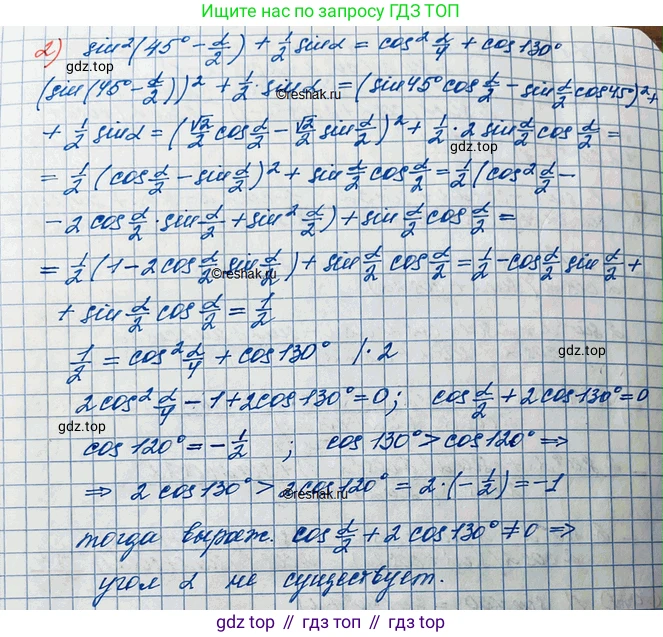 Ищите нас по запросу ГДЗ ТОП
2) sin²(45° - α/2) + 1/2 sinα = cos² α/4 + cos130°
(sin(45° - α/2))² + 1/2 sinα = (sin45° cos α/2 - sin α/2 cos45°)² +
©reshak.ru
гдз top
+ 1/2 sinα = (√2/2 cos α/2 - √2/2 sin α/2)² + 1/2 · 2 sin α/2 cos α/2 =
гдз top
= 1/2 (cos α/2 - sin α/2)² + sin α/2 cos α/2 = 1/2 (cos² α/2 -
- 2 cos α/2 · sin α/2 + sin² α/2) + sin α/2 cos α/2 =
= 1/2 (1 - 2cos α/2 sin α/2) + sin α/2 cos α/2 = 1/2 - cos α/2 sin α/2 +
©reshak.ru
+ sin α/2 cos α/2 = 1/2
1/2 = cos² α/4 + cos130° | · 2
гдз top
2cos² α/4 - 1 + 2cos130° = 0; cos α/2 + 2cos130° = 0
гдз top
cos120° = -1/2 ; cos130° > cos120° ⇒
⇒ 2 cos130° > 2cos120° = 2·(-1/2) = -1
©reshak.ru
тогда выраж. cos α/2 + 2 cos130° ≠ 0 ⇒
угол α не существует.
gdz top // гдз топ // gdz top